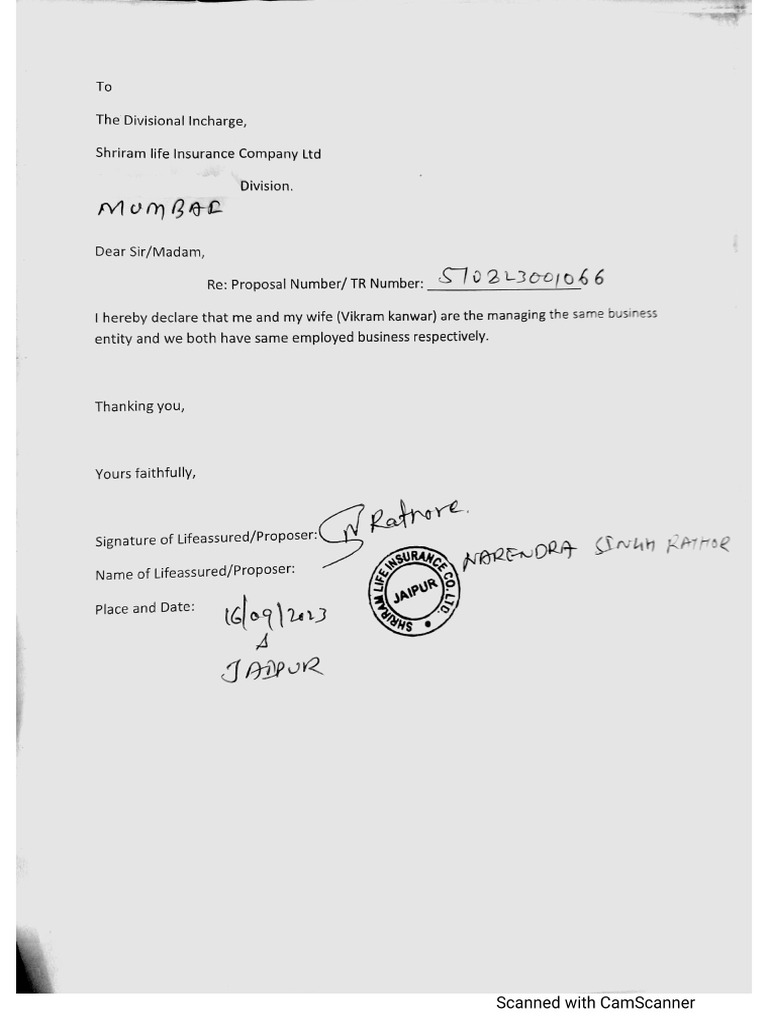 To
The Divisional Incharge,
Shriram life Insurance Company Ltd
Division.
MUMBAI
Dear Sir/Madam,
Re: Proposal Number/ TR Number: 570823001066
I hereby declare that me and my wife (Vikram kanwar) are the managing the same business
entity and we both have same employed business respectively.
Thanking you,
Yours faithfully,
Signature of Lifeassured/Proposer: Rathore.
Name of Lifeassured/Proposer: NARENDRA SINGH RATHOR
SHRIRAM LIFE INSURANCE CO. LTD.
JAIPUR
Place and Date: 16/09/2023
JAIPUR
Scanned with CamScanner